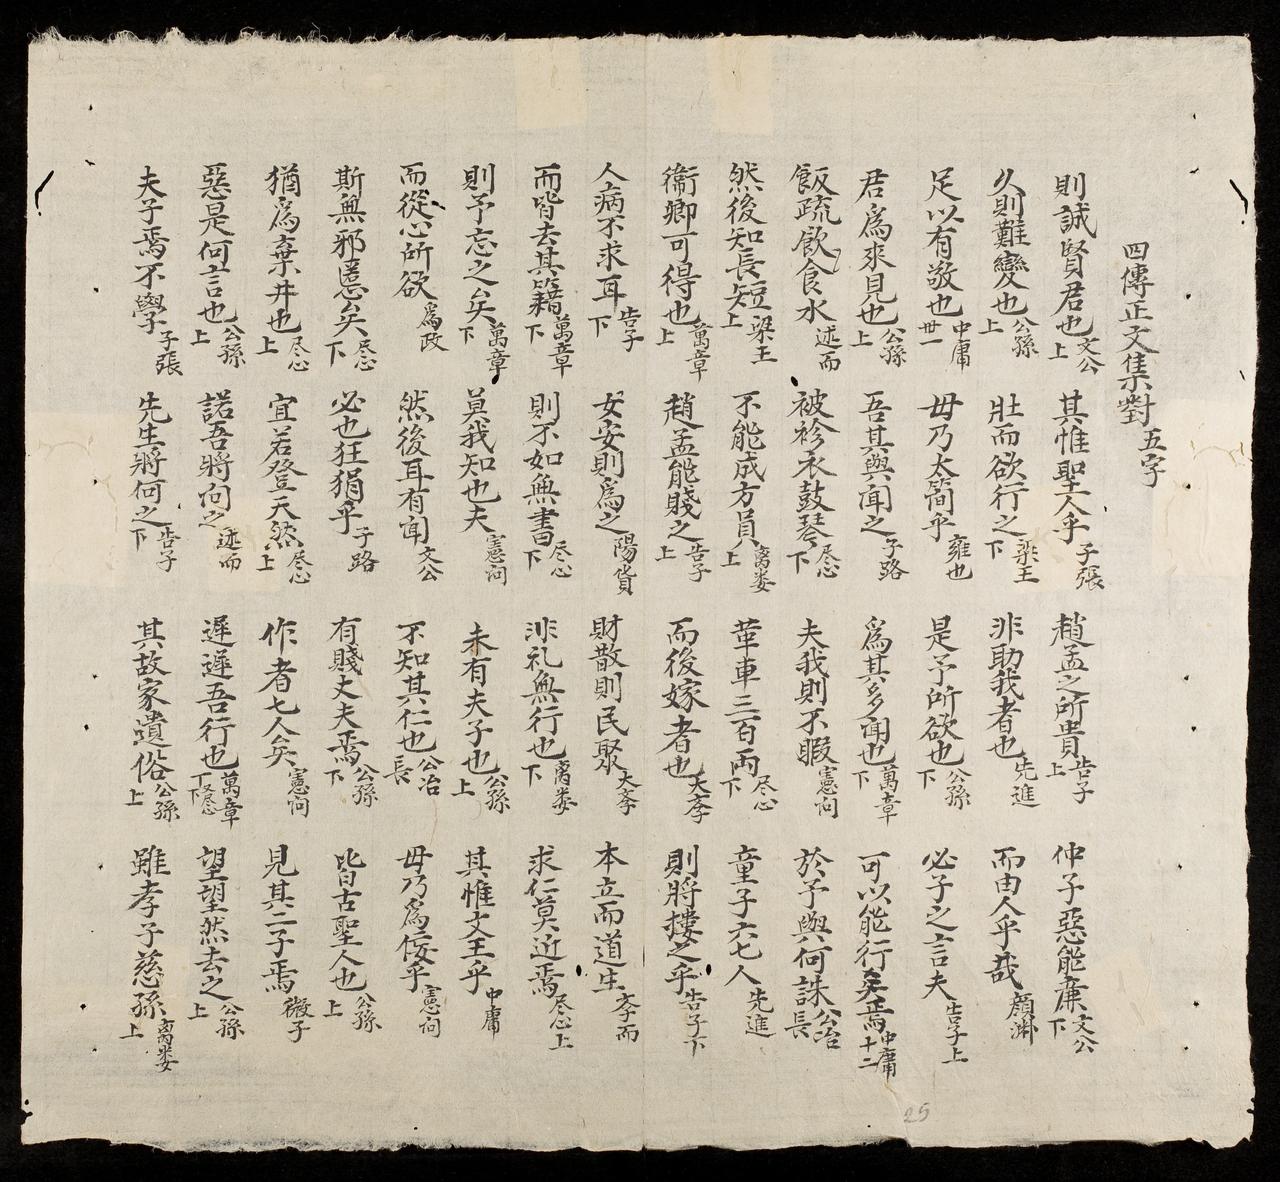 四傳正文集對 五字
則誠賢君也 文公上 其惟聖人乎 子張 趙孟之所貴 告子上 仲子惡能廉 文公下
久則難變也 公孫上 壯而欲行之 梁王下 非助我者也 先進 而由人乎哉 顏淵
足以有敬也 中庸卅一 毋乃太簡乎 雍也 是予所欲也 公孫下 必子之言夫 告子上
君爲來見也 公孫上 吾其與聞之 子路 爲其多聞也 萬章下 可以能行矣焉 中庸十二
飯疏飲食水 述而 被袗衣鼓琴 尽心下 夫我則不暇 憲问 於予與何誅 公冶長
然後知長短 梁王上 不能成方員 离娄上 革車三百両 尽心下 童子六七人 先進
衛卿可得也 萬章上 趙孟能賤之 告子上 而後嫁者也 大孝 則將摟之乎 告子下
人病不求耳 告子下 女安則爲之 陽貨 財散則民聚 大孝 本立而道生 孝而
而皆去其籍 萬章下 則不如無書 尽心下 非礼無行也 离娄下 求仁莫近焉 尽心上
則予忘之矣 萬章下 莫我知也夫 憲问 未有夫子也 公孫上 其惟文王乎 中庸
而從心所欲 爲政 然後耳有聞 文公 不知其仁也 公冶長 毋乃爲佞乎 憲问
斯無邪慝矣 尽心下 必也狂狷乎 子路 有賤丈夫焉 公孫下 皆古聖人也 公孫上
猶爲棄井也 尽心上 宜若登天然 尽心上 作者七人矣 憲问 見其二子焉 微子
惡是何言也 公孫上 諾吾將问之 述而 遲遲吾行也 萬章下尽心下 望望然去之 公孫上
夫子焉不學 子張 先生將何之 告子下 其故家遺俗 公孫上 雖孝子慈孫 离娄上
25